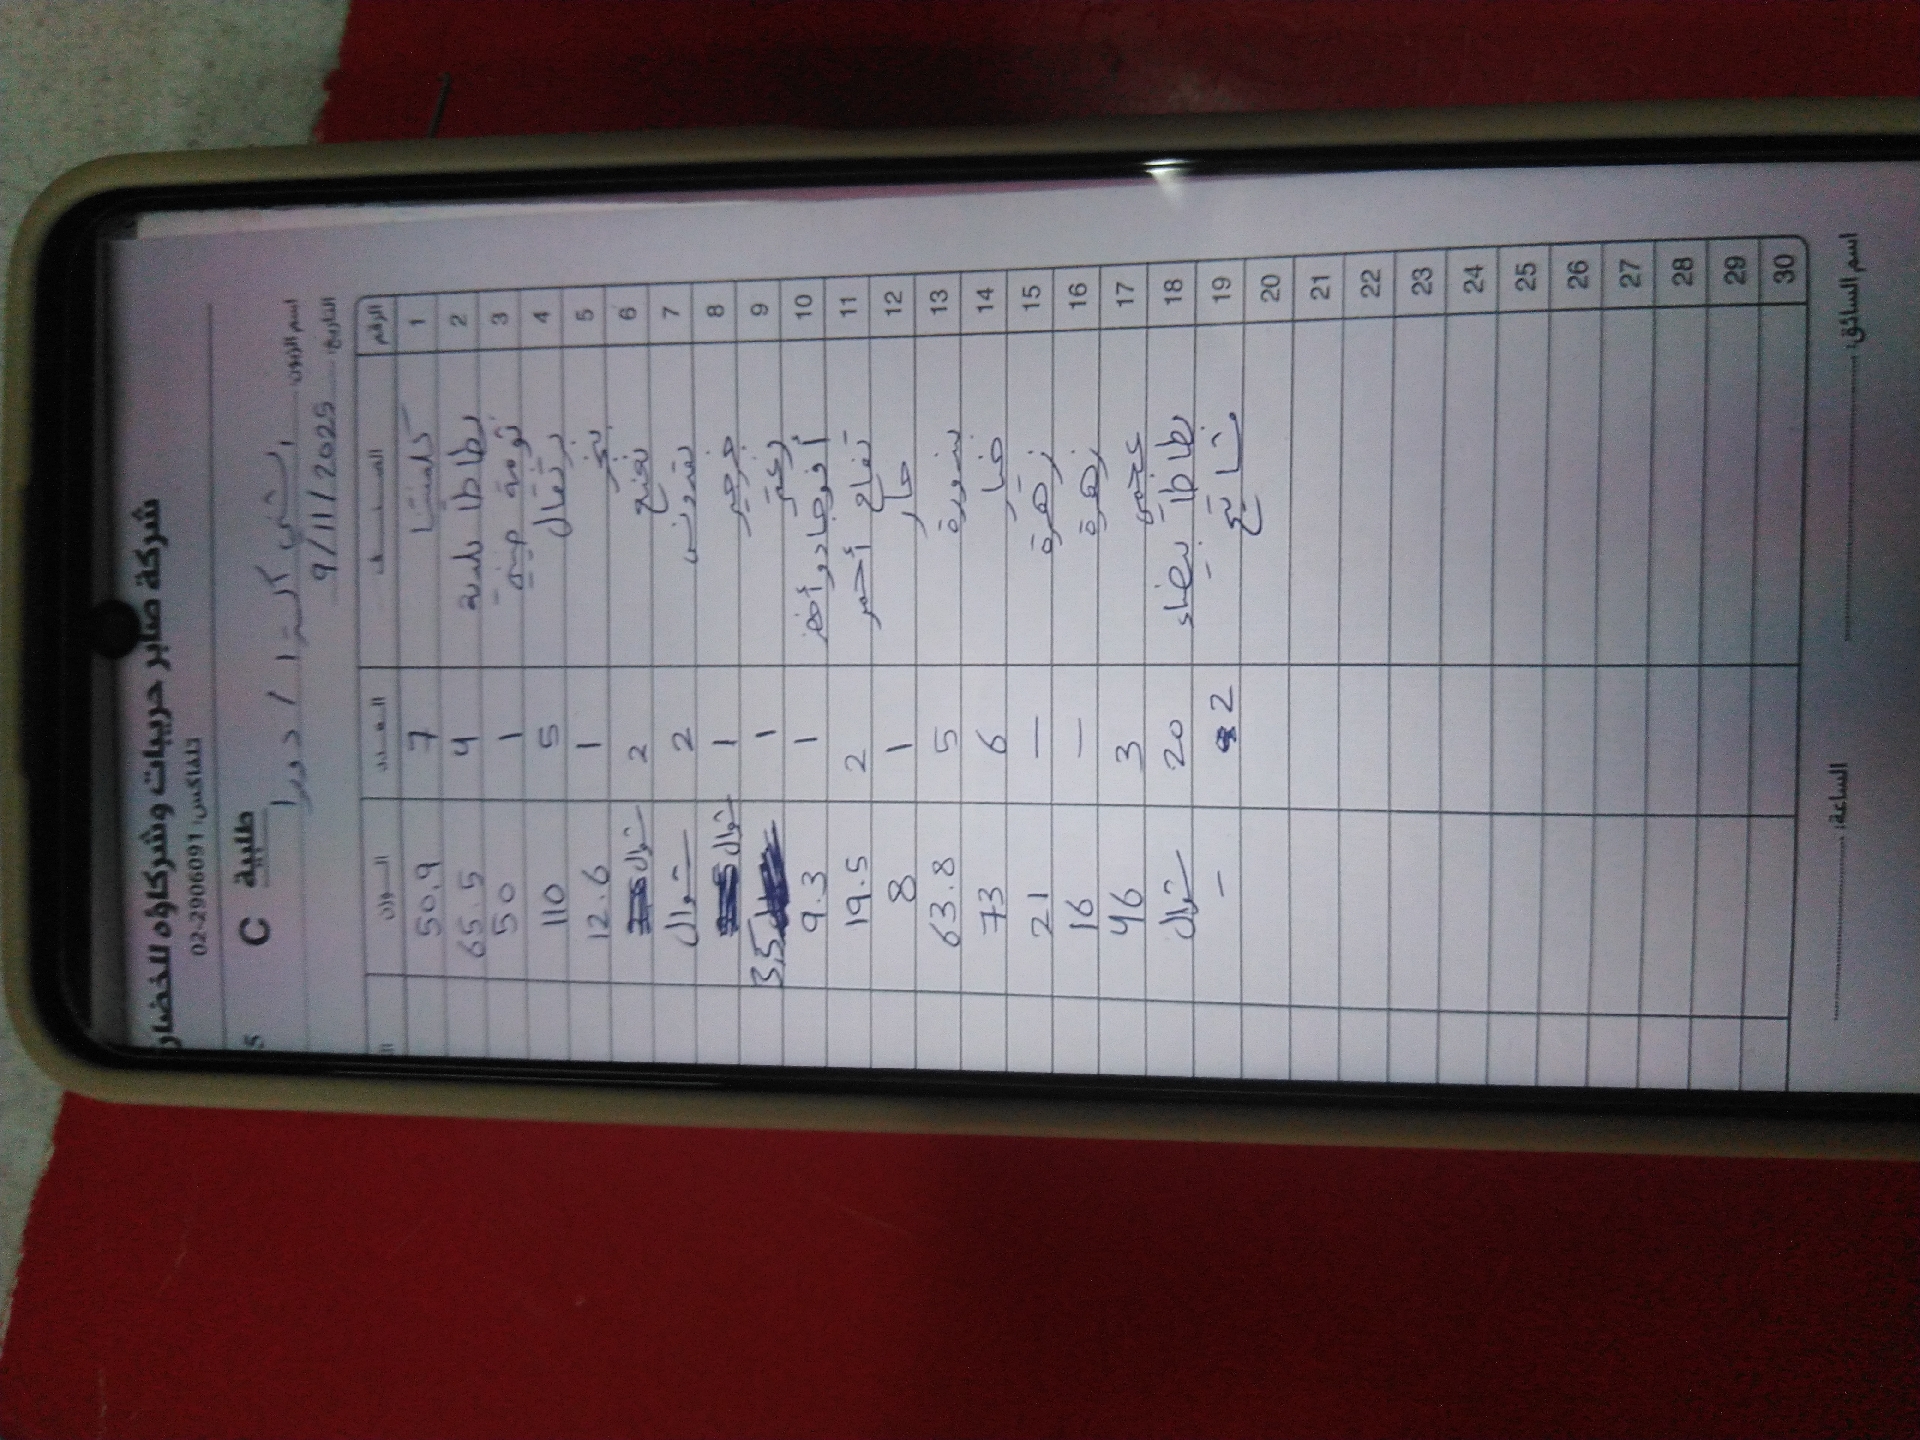 شركة صابر حريبات وشركاؤه للخضار
تلفاكس: 02-2906091
C طلبية
اسم الزبون: الشني اكسترا / دورا
التاريخ: 9/11/2025
الرقم الصنف العدد الوزن
1 كلمنتينا 7 50.9
2 بطاطا بلدية 4 65.5
3 ثومة صينية 1 50
4 برتقال 5 110
5 1 12.6
6 نعنع 2 شوال
7 بقدونس 2 شوال
8 جرجير 1 شوال
9 زعتر 1 3,5
10 أفوجادو أخضر 1 9.3
11 تفاح أحمر 2 19.5
12 حار 1 8
13 بندورة 5 63.8
14 خيار 6 73
15 زهرة — 21
16 زهرة — 16
17 عجمي 3 46
18 بطاطا بيضاء 20 شوال
19 2 –
20
21
22
23
24
25
26
27
28
29
30
اسم السائق: الساعة: